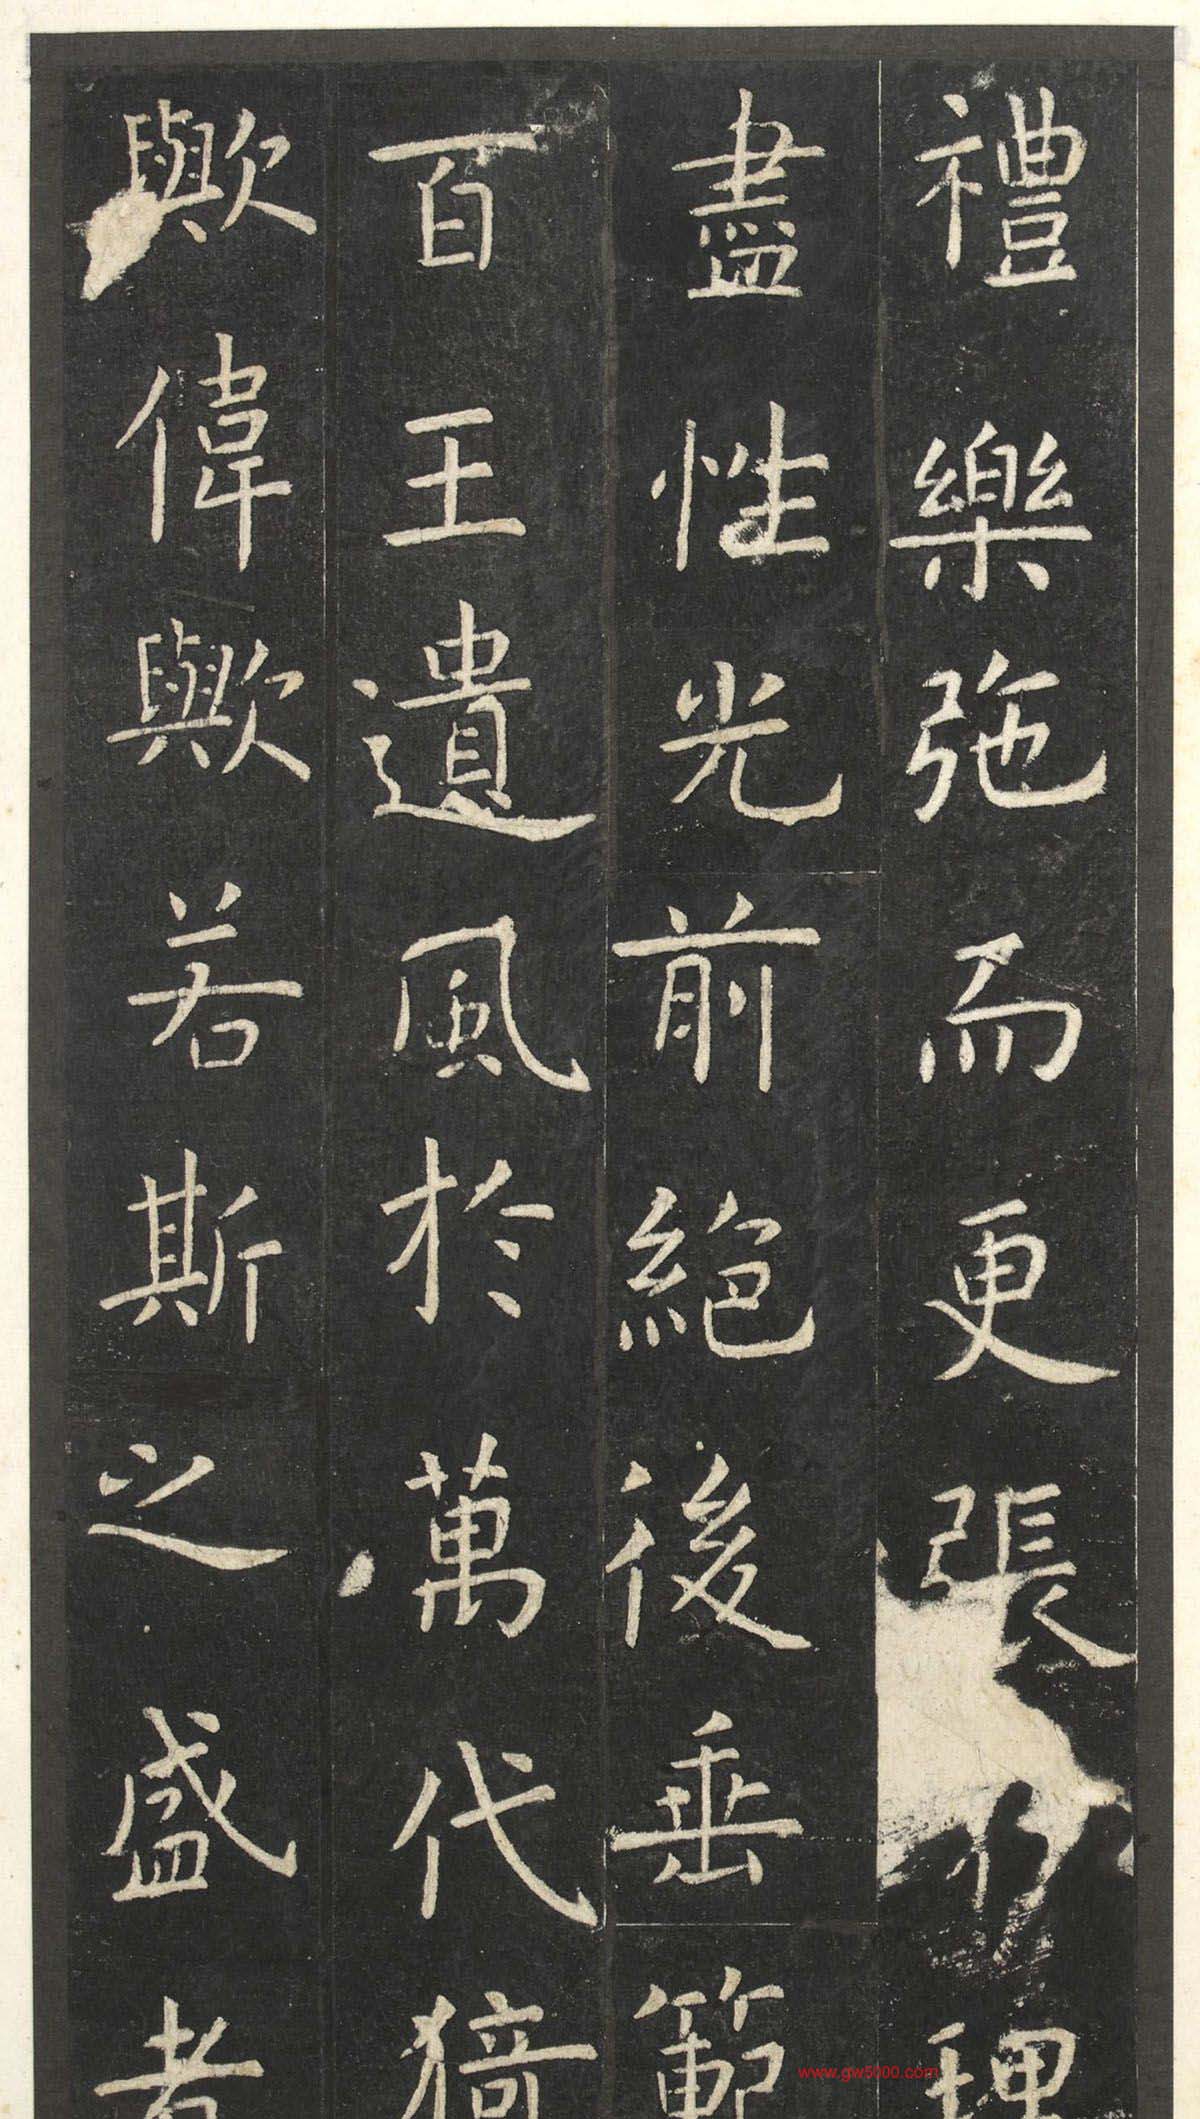 禮樂弛而更張理
盡性光前絕後垂範
百王遺風於萬代猗
歟偉歟若斯之盛者
www.gw5000.com